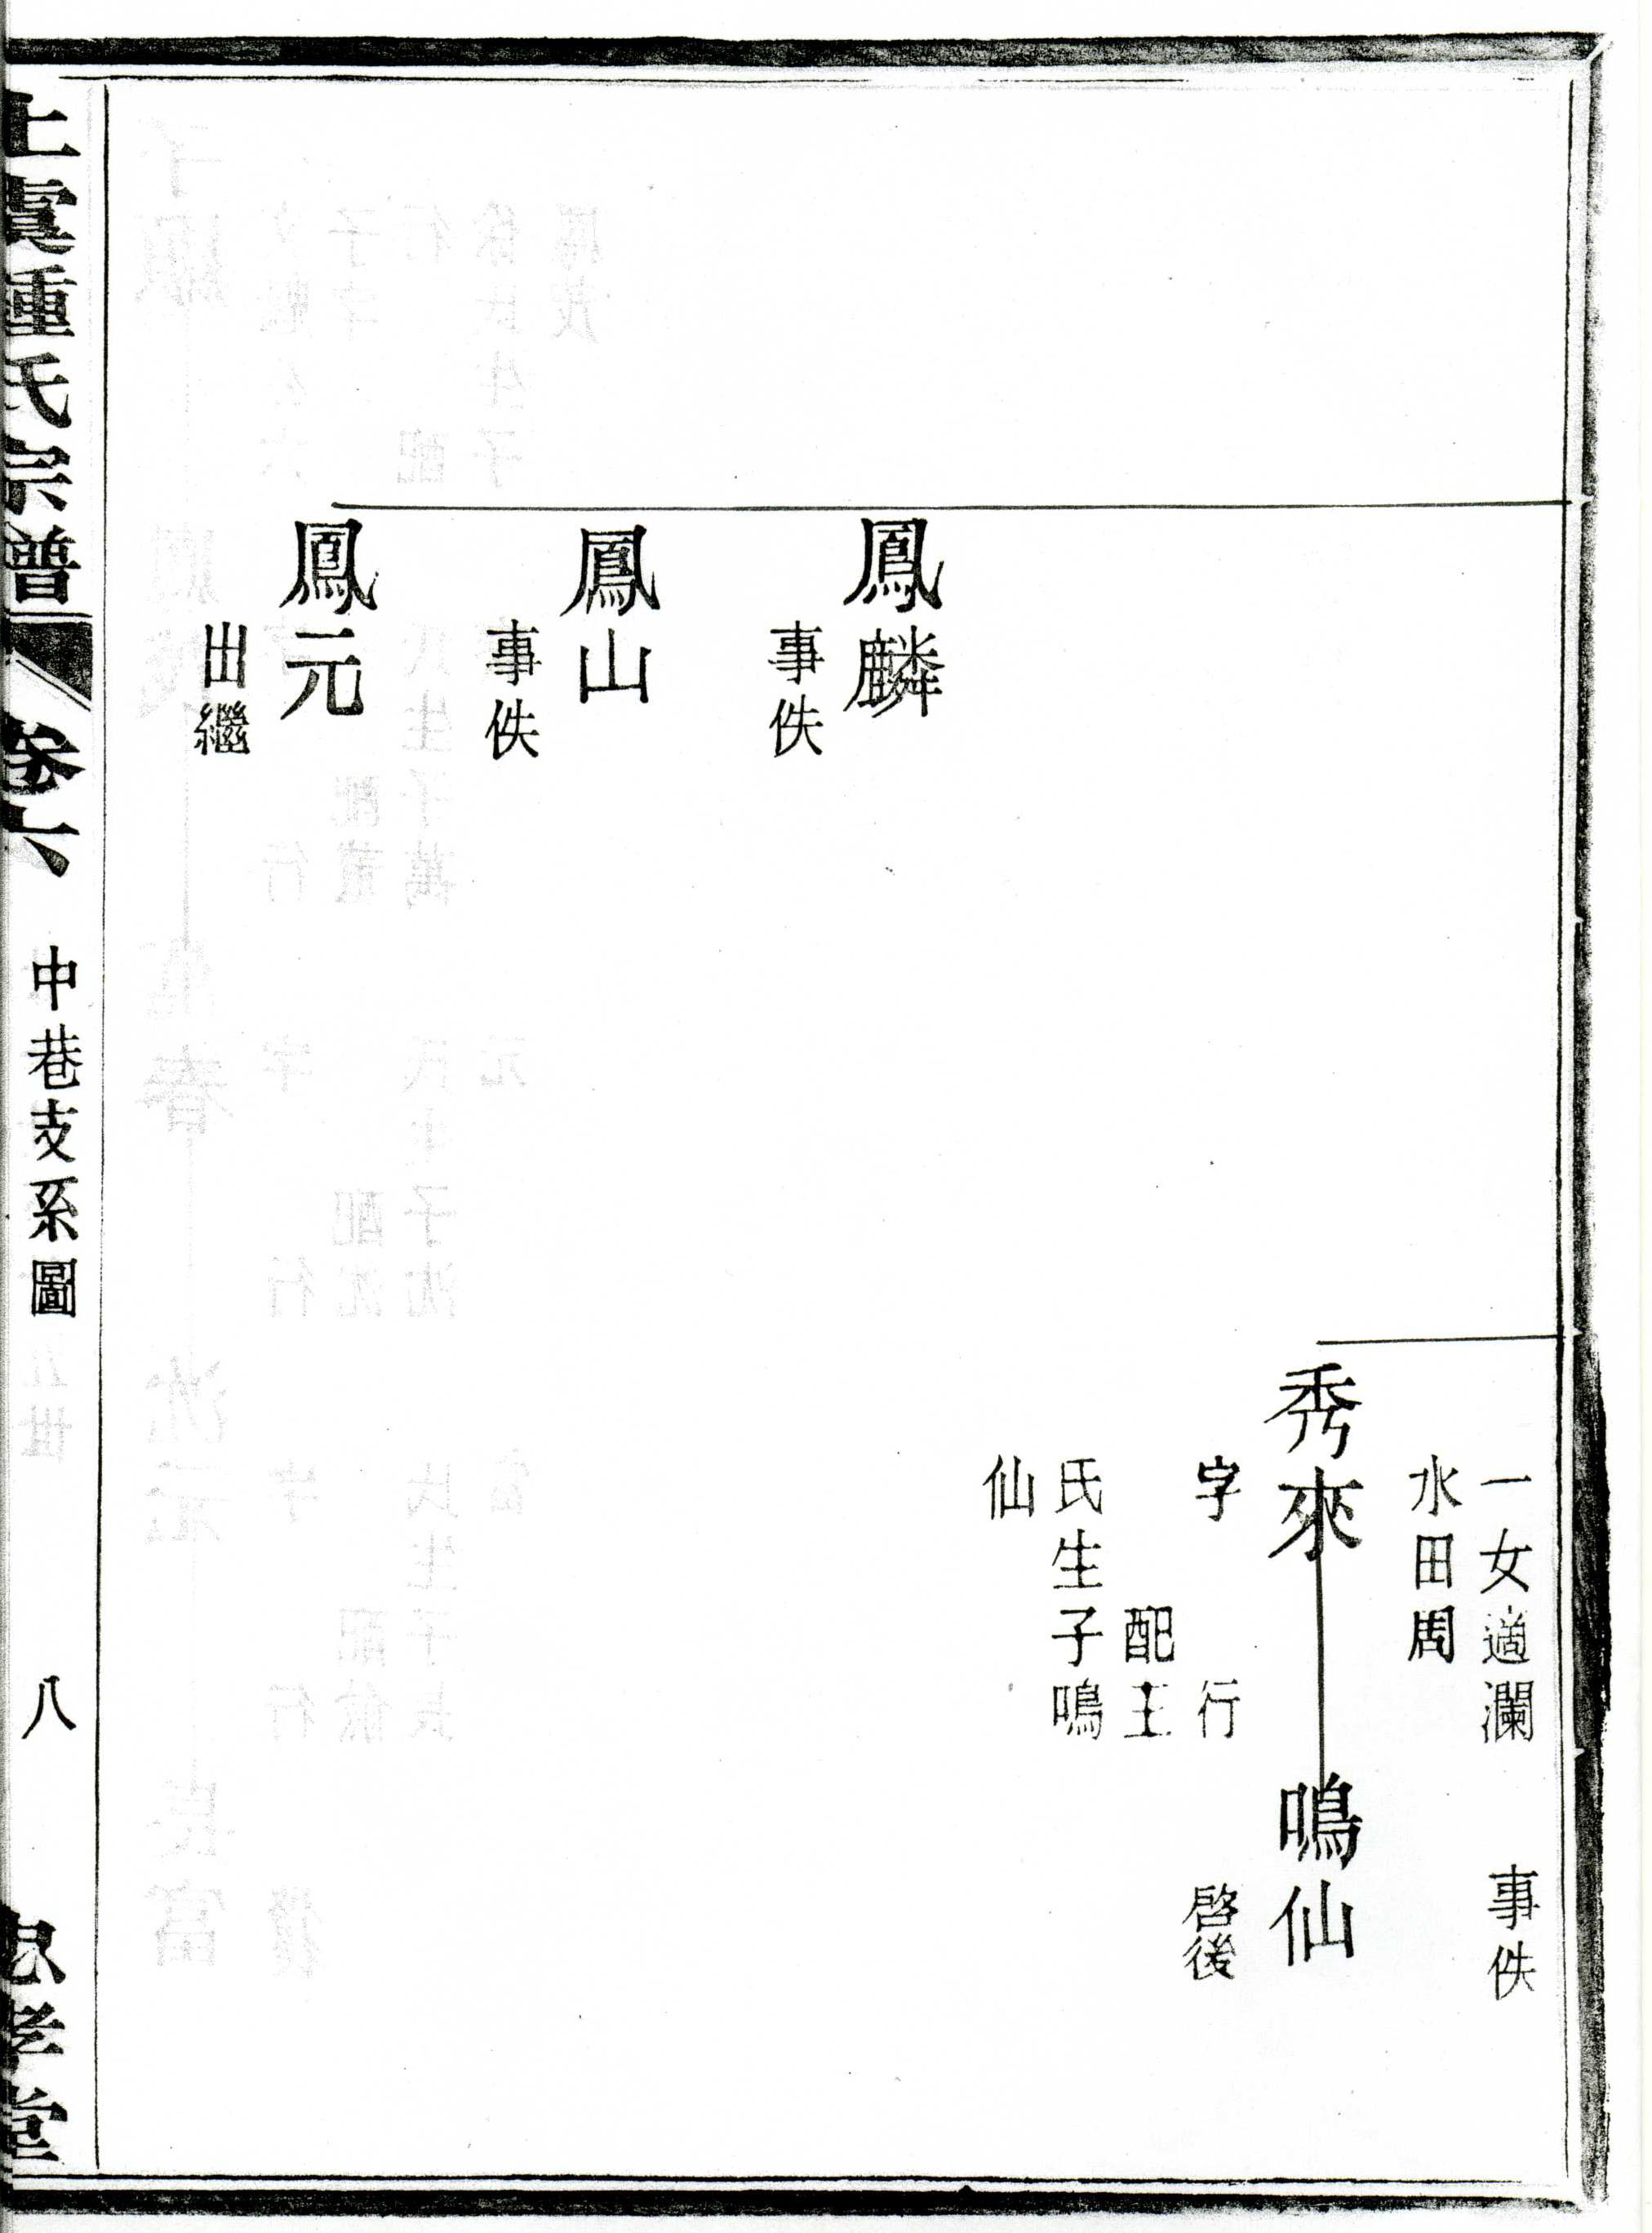 一女適瀾
水田周
事佚
秀來
字 行
配王
氏生子鳴
仙
鳴仙
啓後
鳳麟
事佚
鳳山
事佚
鳳元
出繼
上虞鍾氏宗譜
卷六
中巷支系圖
八
忠孝堂